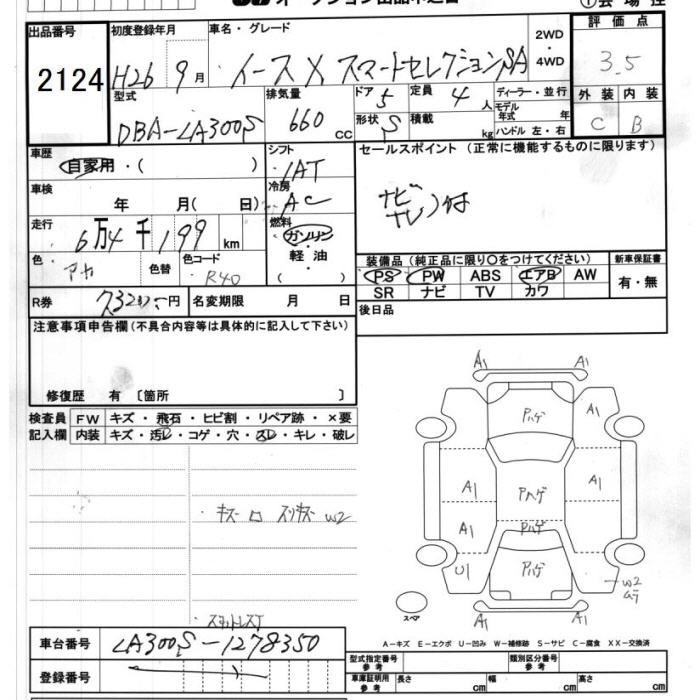 出品番号 2124
初度登録年月 H26 9月
車名・グレード イース X スマートセレクションSA
2WD・4WD
評価点 3.5
外装 C 内装 B
型式 DBA-LA300S
排気量 660 cc
ドア 5 形状 S
定員 4人 積載 kg
ディーラー・並行
モデル年式 年
ハンドル 左・右
車歴 自家用・( )
シフト IAT
車検 年 月( 日)
冷房 AC
走行 6万4千199 km
燃料 ガソリン・軽油 ( )
色 アカ 色替 色コード R40
R券 円 名変期限 月 日
セールスポイント (正常に機能するものに限ります)
ナビ テレビ付
装備品 (純正品に限り○をつけてください)
PS PW ABS エアB AW
SR ナビ TV カワ
新車保証書 有・無
後日品
注意事項申告欄(不具合内容等は具体的に記入して下さい)
修復歴 有 〔箇所 〕
検査員記入欄
FW キズ・飛石・ヒビ割・リペア跡・×要
内装 キズ・汚レ・コゲ・穴・スレ・キレ・破レ
キズ ロ スリキズ W2
A1 A1
A1
A1 A1
A1
U1
W2
A1 A1
ハゲ
Aハゲ
スペア
A-キズ E-エクボ U-凹み W-補修跡 S-サビ C-腐食 XX-交換済
車台番号 LA300S-1278350
登録番号
型式指定番号 参考 類別区分番号 参考
車庫証明用 参考 長さ cm 幅 cm 高さ cm